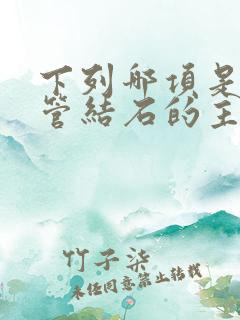 下列哪項是
管結石的主
竹子柒
未任同意禁止轉載